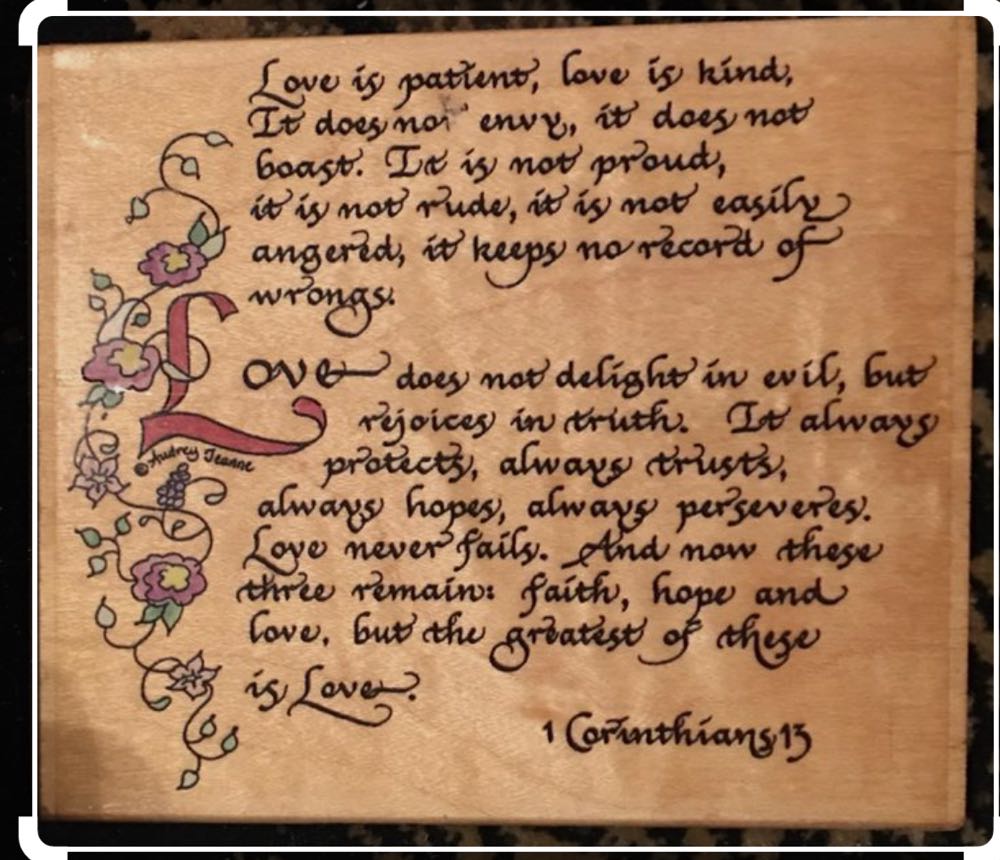 Love is patient, love is kind,
It does not envy, it does not
boast. It is not proud,
it is not rude, it is not easily
angered, it keeps no record of
wrongs.
Love does not delight in evil, but
rejoices in truth. It always
protects, always trusts,
always hopes, always perseveres.
Love never fails. And now these
three remain: faith, hope and
love, but the greatest of these
is Love.
1 Corinthians 13
© Audrey Jeanne